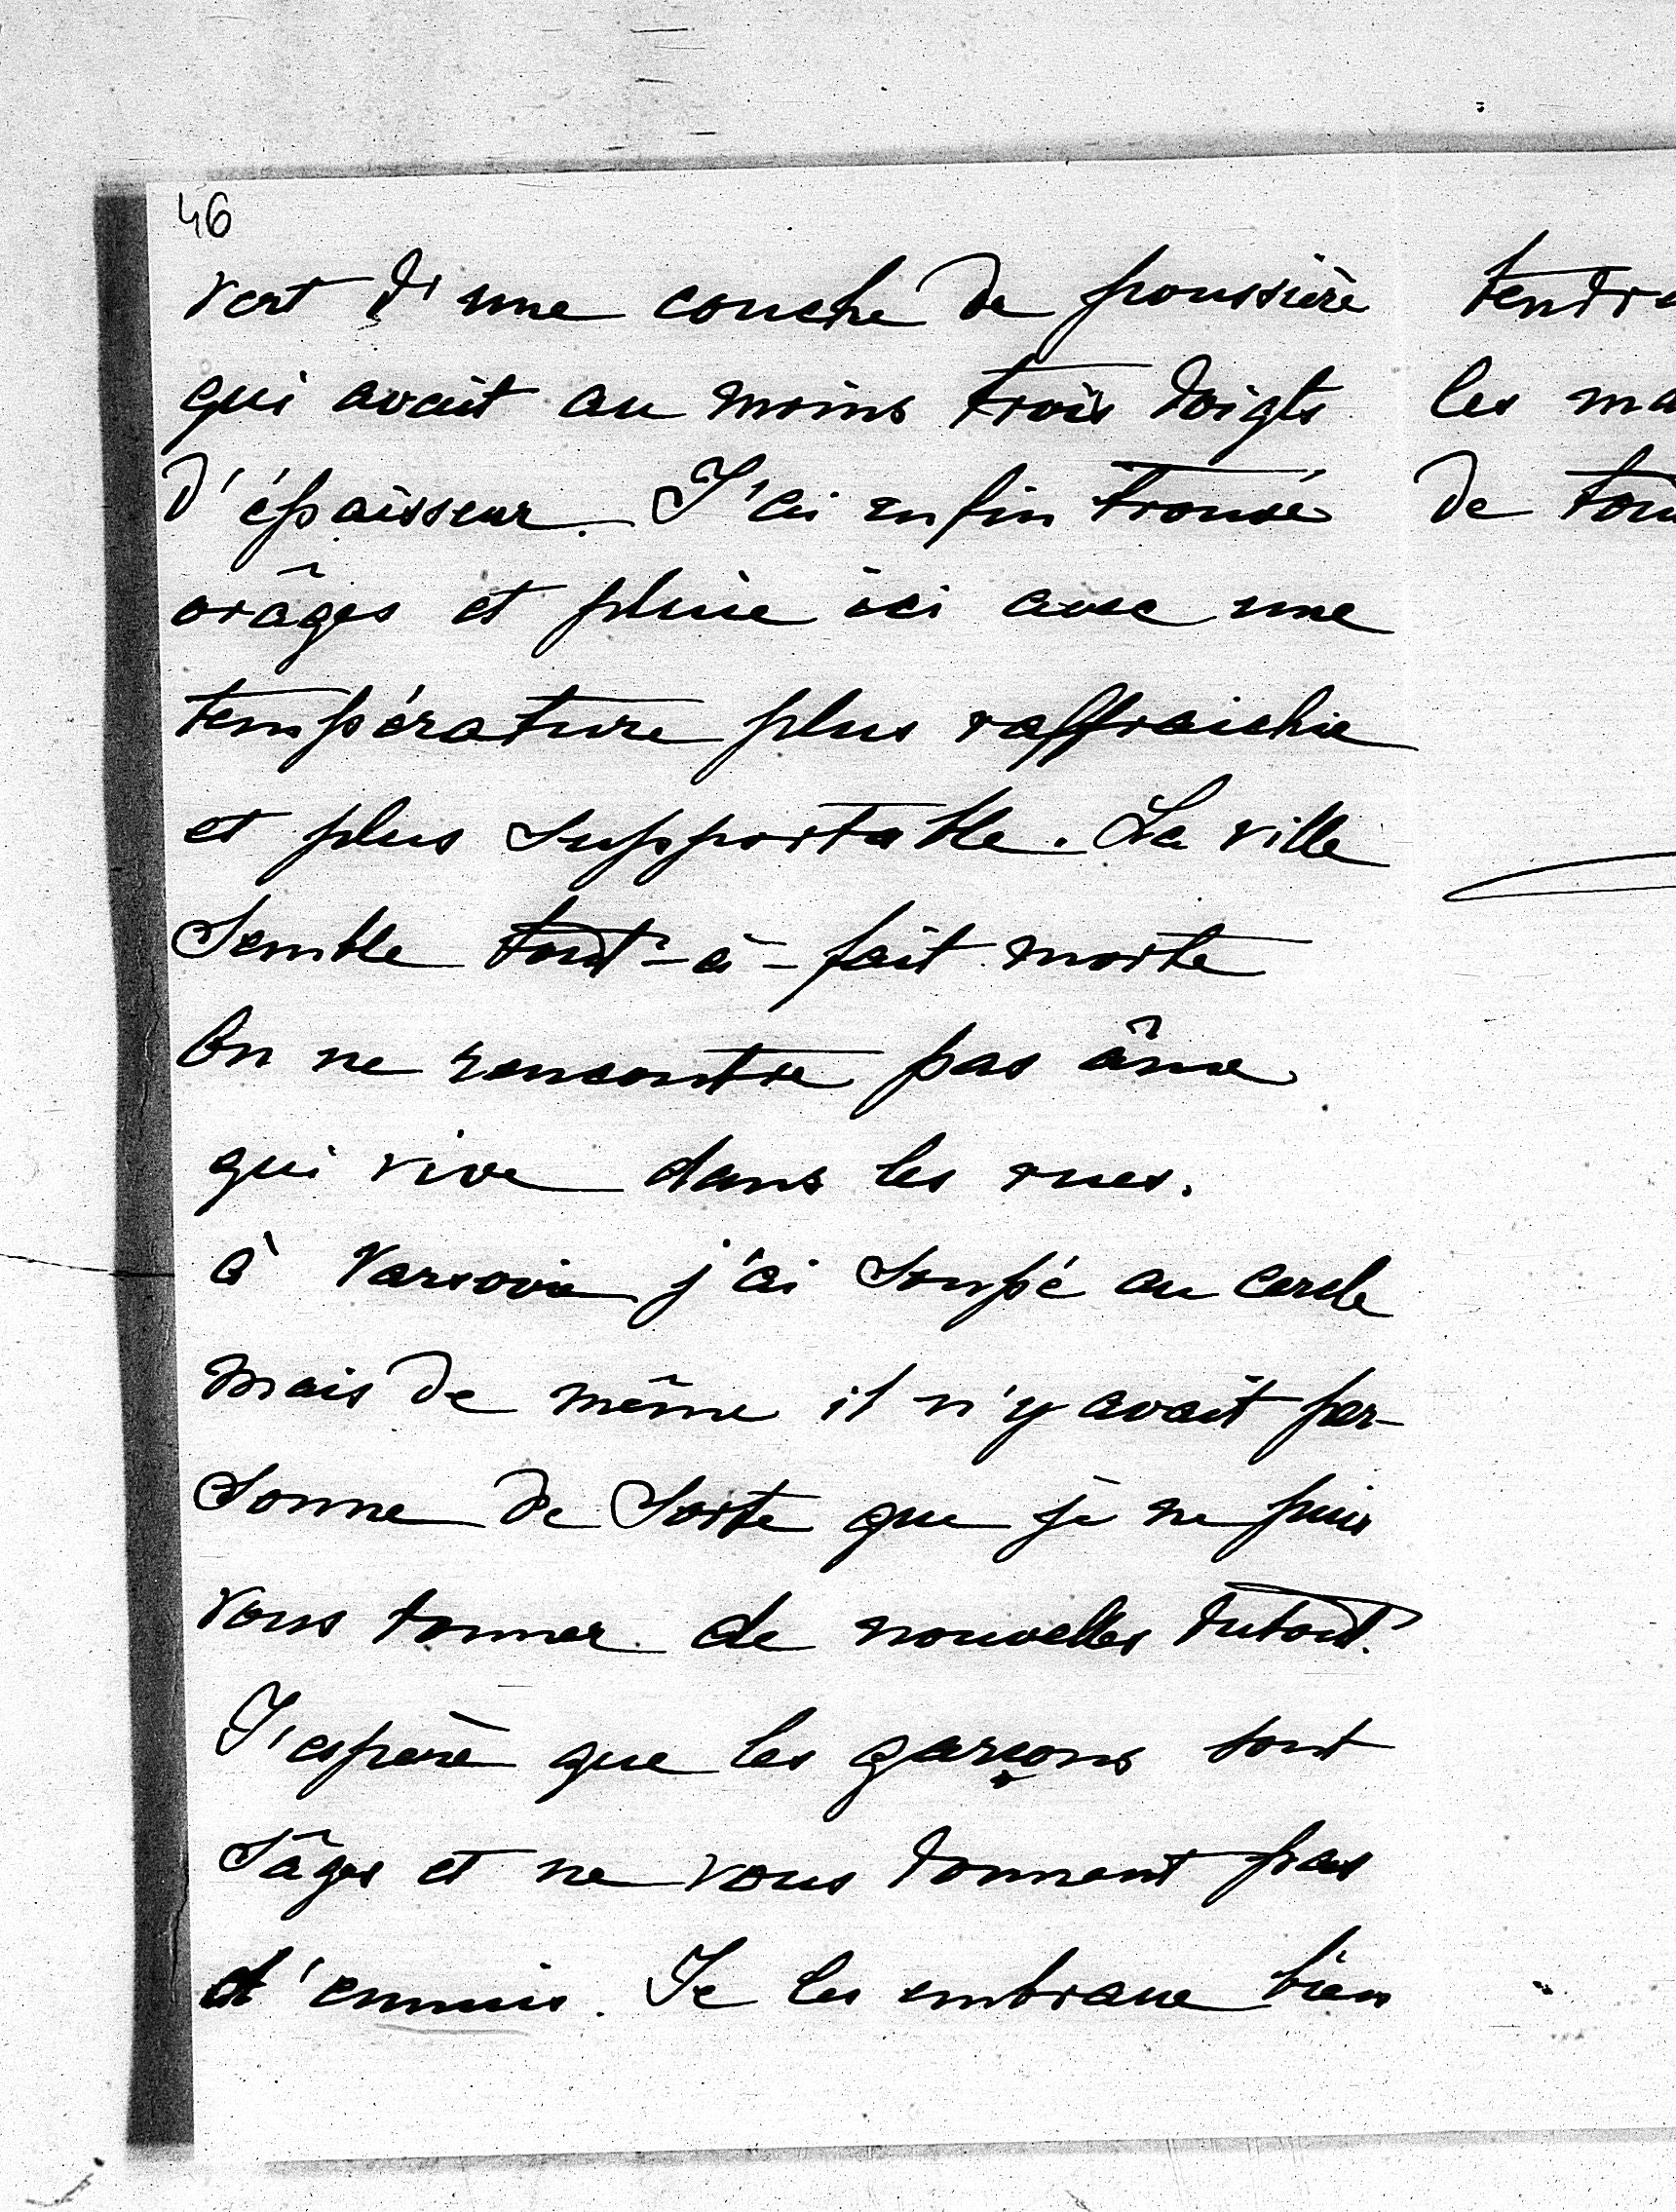 46
vert d'une couche de poussière
qui avait au moins trois doigts
d'épaisseur. J'ai enfin trouvé
orâges et pluie ici avec une
température plus raffraichie
et plus supportable. La ville
semble tout-à-fait morte
On ne rencontre pas âme
qui vive dans les rues.
à Varsovie j'ai soupé au cercle
mais de même il n'y avait per-
sonne de sorte que je ne puis
vous donner de nouvelles dutout.
J'espère que les garçons sont
sâges et ne vous donnent pas
d'ennuis. Je les embrasse bien
les
de